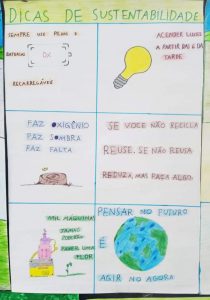 DICAS DE SUSTENTABILIDADE
SEMPRE USE PILHA E
BATERIAS
RECARREGÁVEIS
ACENDER LUZES
A PARTIR DAS 6 DA
TARDE
FAZ OXIGÊNIO
FAZ SOMBRA
FAZ FALTA
SE VOCÊ NÃO RECICLA
REUSE. SE NÃO REUSA
REDUZA, MAS FAÇA ALGO.
MIL MÁQUINAS
JAMAIS
PODERÃO
FAZER UMA
FLOR
PENSAR NO FUTURO
É
AGIR NO AGORA